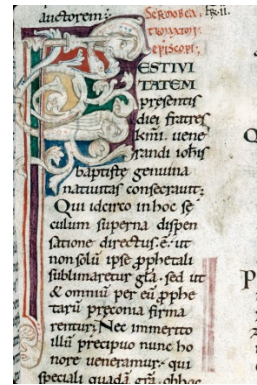 auctorem;
Sermo bea
ti maximi
episcopi;
ESTIVI
TATEM
presentis
diei fratres
kmi. uene
randi iohis
baptiste genuina
natiuitas consecrauit;
Qui idcirco in hoc se
culum superna dispen
satione directus. ē. ut
non solū ipse pphetali
sublimaretur gła. sed ut
& omniū per eū pphe
tarū preconia firma
rentur; Nec immerito
illū precipuo nunc ho
nore ueneramur. qui
speciali quadā gra. obhoc